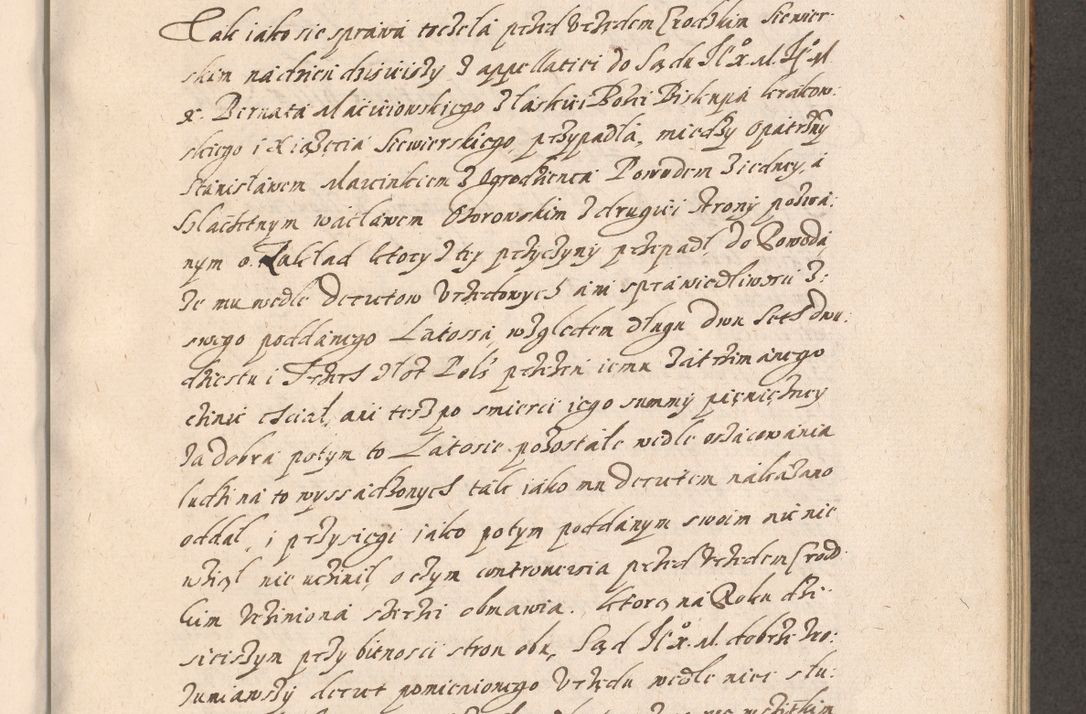 Tak iako sie sprawa toczela przed Vrzędem Grodzkim Siewier-
skim na dzien dzisieiszy z appellatiei do Sądu Je°x. M. Je° M
x. Bernata Macieiowskiego z łaskiei Bożei Biskupa krakow-
skiego i Xiążęcia Siewierskiego przypadla, miedzy Opatrzny
Stanisławem Marcinkiem z Ogrodzienca Powodem z iedney, a
Szlachetnym wacławem Oborowskim z drugiei strony pozwa-
nym o Zakład ktory z tey przyczyny przepadł do Powoda
że mu wedle decretow Vrzędowych ani sprawiedliwosci z
swego poddanego Latossa, względem długu dwu set dwu-
dziestu i złot Pols przezen iemu zatrzimanego
czinic chciał, ani tesz po smierci iego summy pięniężney
za dobra potym to Latosie pozostałe wedle oszacowania
ludzi na to wyssadzonych tak iako mu decretem nakazano
oddał, i przysięgi iako potym poddanym swoim nic nie
wziął nie uchinił, o czym controwersia przed Vrzędem Grodz-
kim Vcziniona szerzei obmawia. ktorą na Roku dzi-
sieiszym przy bitnosci stron obu, Sąd Je°x. M. dobrze zro-
zumiawszy decret pomienionego Vrzędu wedle niei słu-